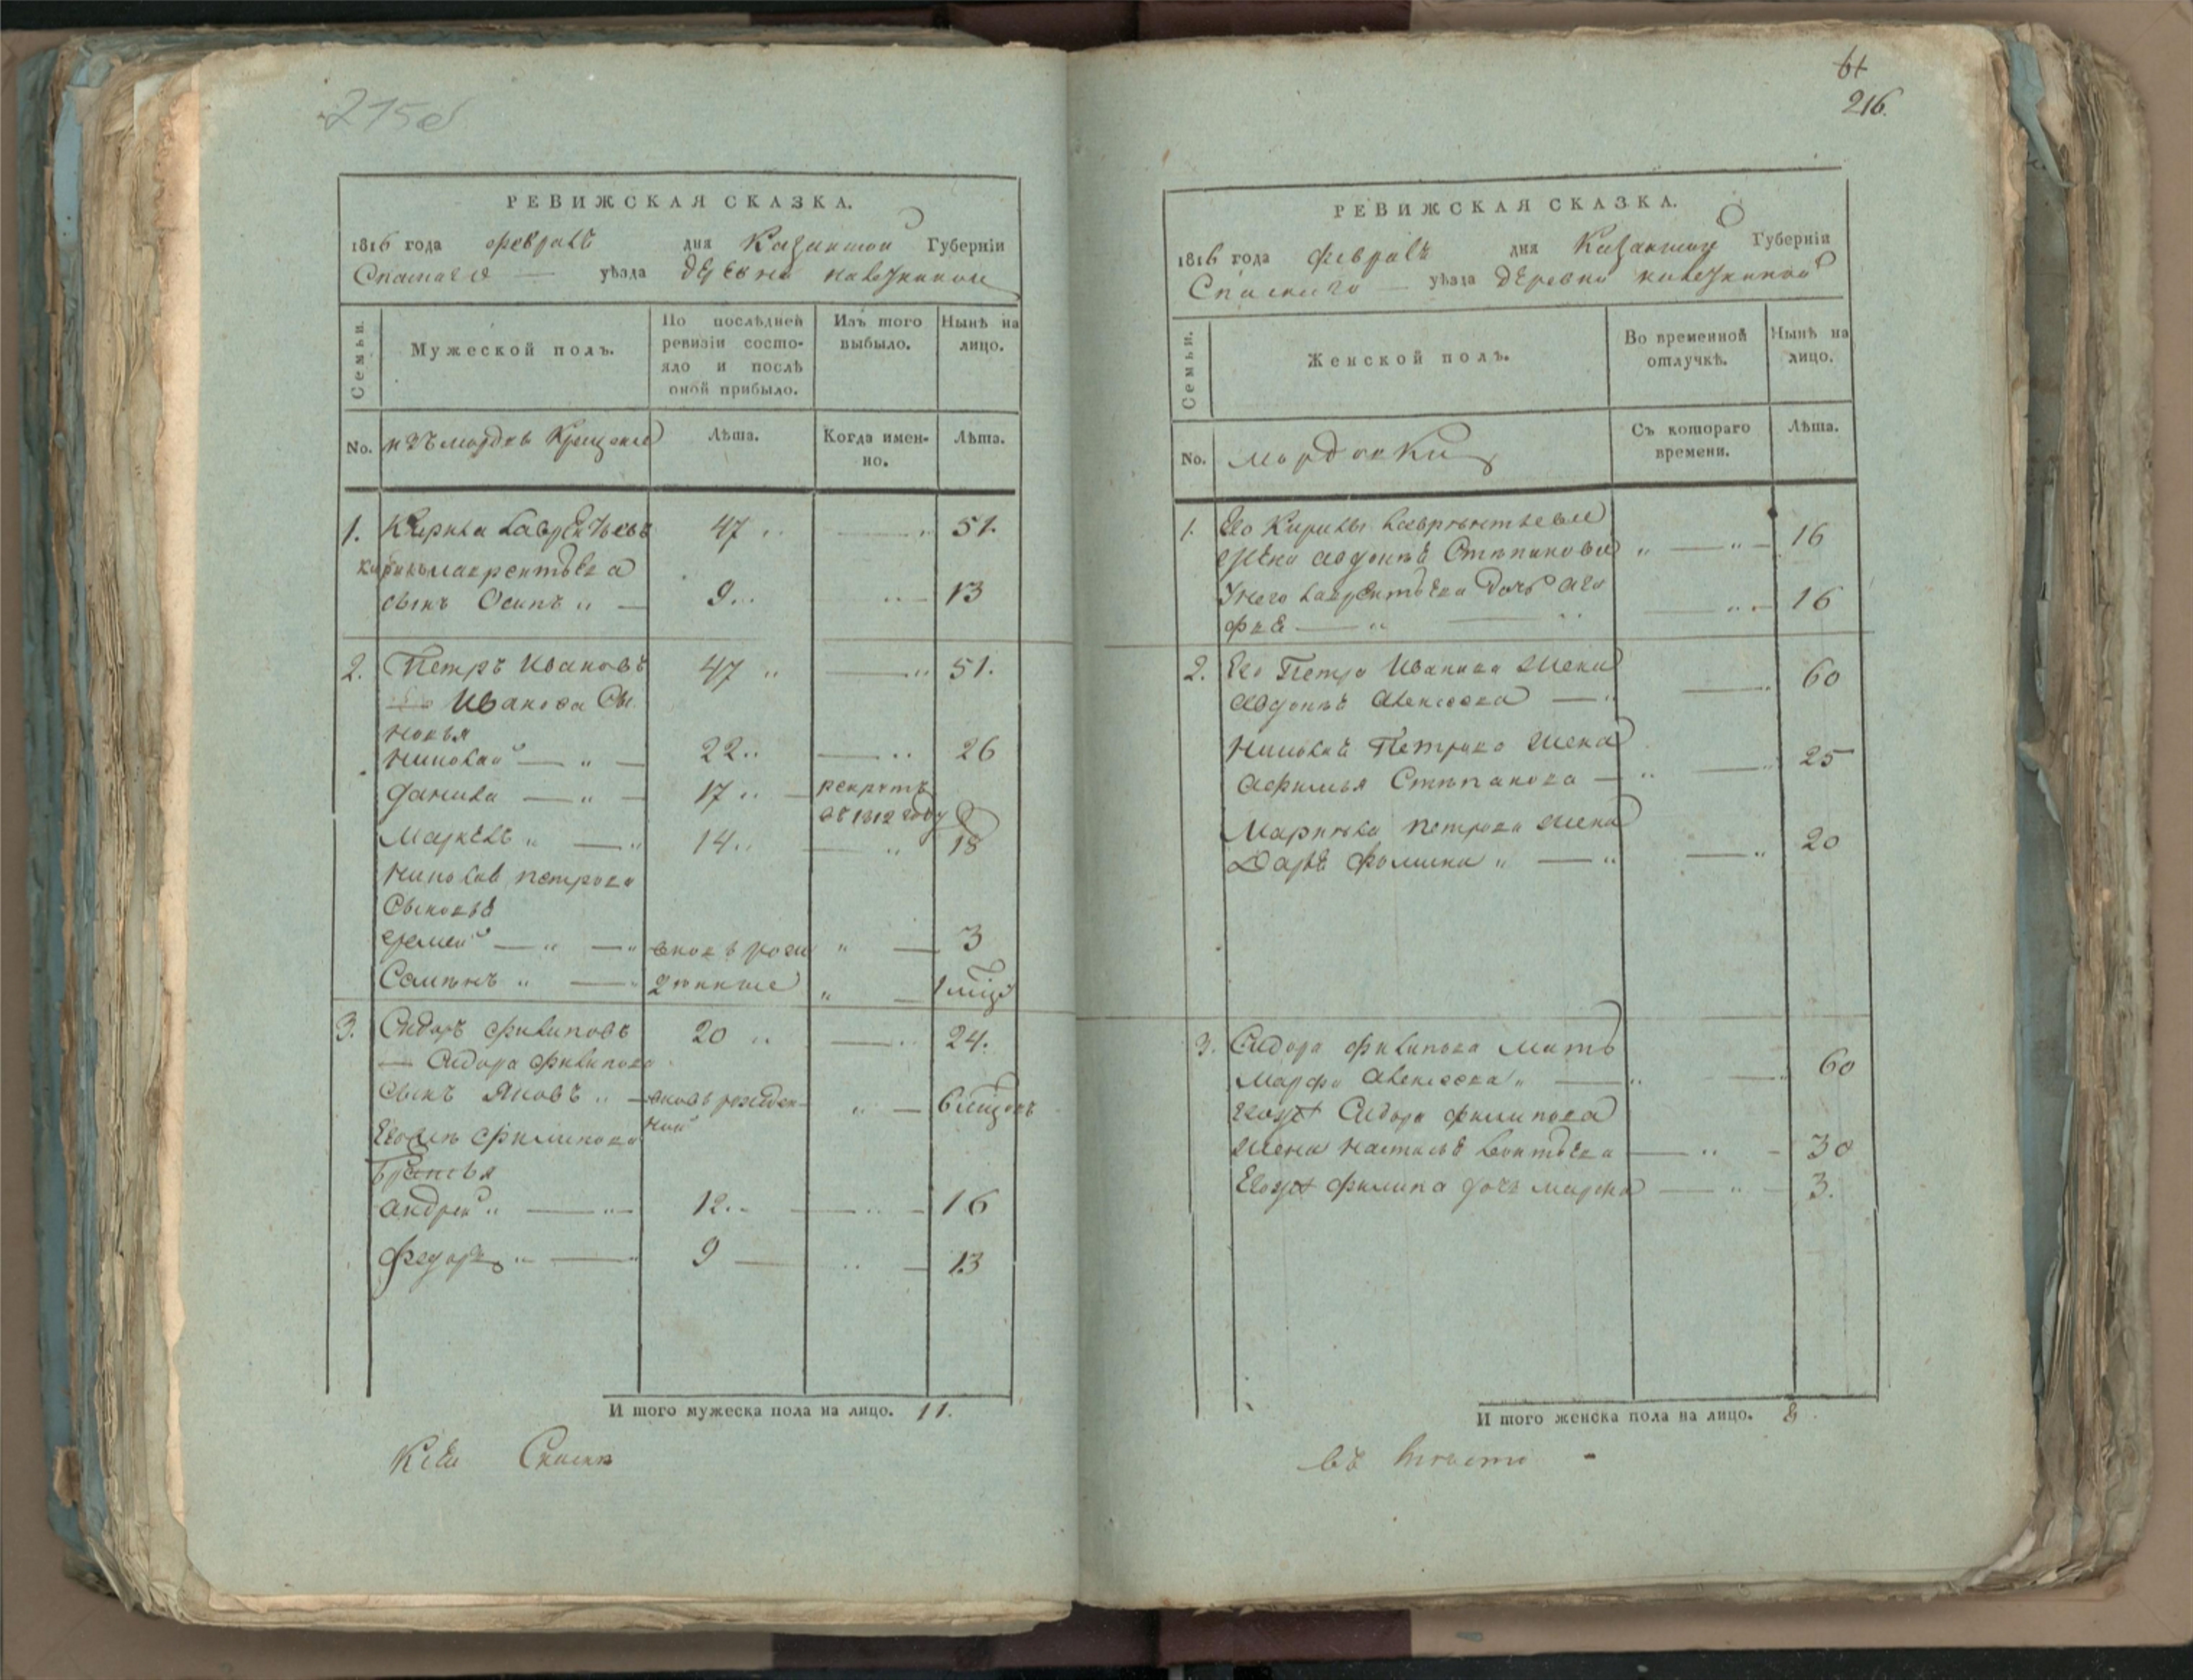 215об
РЕВИЖСКАЯ СКАЗКА.
1816 года февраль дня Казанской Губерніи
Спаскаго уѣзда деревни
Семьи.
Мужеской полъ.
По послѣдней ревизіи состояло и послѣ оной прибыло.
Изъ того выбыло.
Нынѣ на лицо.
No. изъ мордвъ Крещеные
Лѣта.
Когда именно.
Лѣта.
1. Кирила Лаврентьевъ 47 51.
Кирилы Лаврентьева
сынъ Осипъ 9 13
2. Петръ Ивановъ 47 51.
Иванова Сы
новья
Николай 22 26
Данила 17 рекрутъ
въ 1812 году
Маркелъ 14 18
Николая Петрова
Сыновья
еремей вновь рож 3
Семенъ денные 1
3. Сидоръ Филиповъ 20 24.
Сидора Филипова
сынъ Яковъ вновь рожден 6
ной
Филипова
братья
андрей 12 16
Федоръ 9 13
И того мужеска пола на лицо. 11.
Къ сей Скаске
61
216.
РЕВИЖСКАЯ СКАЗКА.
1816 года февраль дня Казанской Губерніи
Спаскаго уѣзда деревни
Семьи.
Женской полъ.
Во временной отлучкѣ.
Нынѣ на лицо.
No. мордовки
Съ котораго времени.
Лѣта.
1. Ево Кирилы Лаврентьева
жена авдотья Степанова 16
У него Лаврентьева дочь ага
фья 16
2. Ево Петра Иванова жена 60
авдотья алексеева
Николая Петрова жена 25
афимья Степанова
Маркела петрова жена
Дарья фомина 20
3. Сидора филипова мать
марфа алексеева 60
Сидора филипова
жена настасья Леонтьева 30
филипа дочь марфа 3.
И того женска пола на лицо. 8
въ